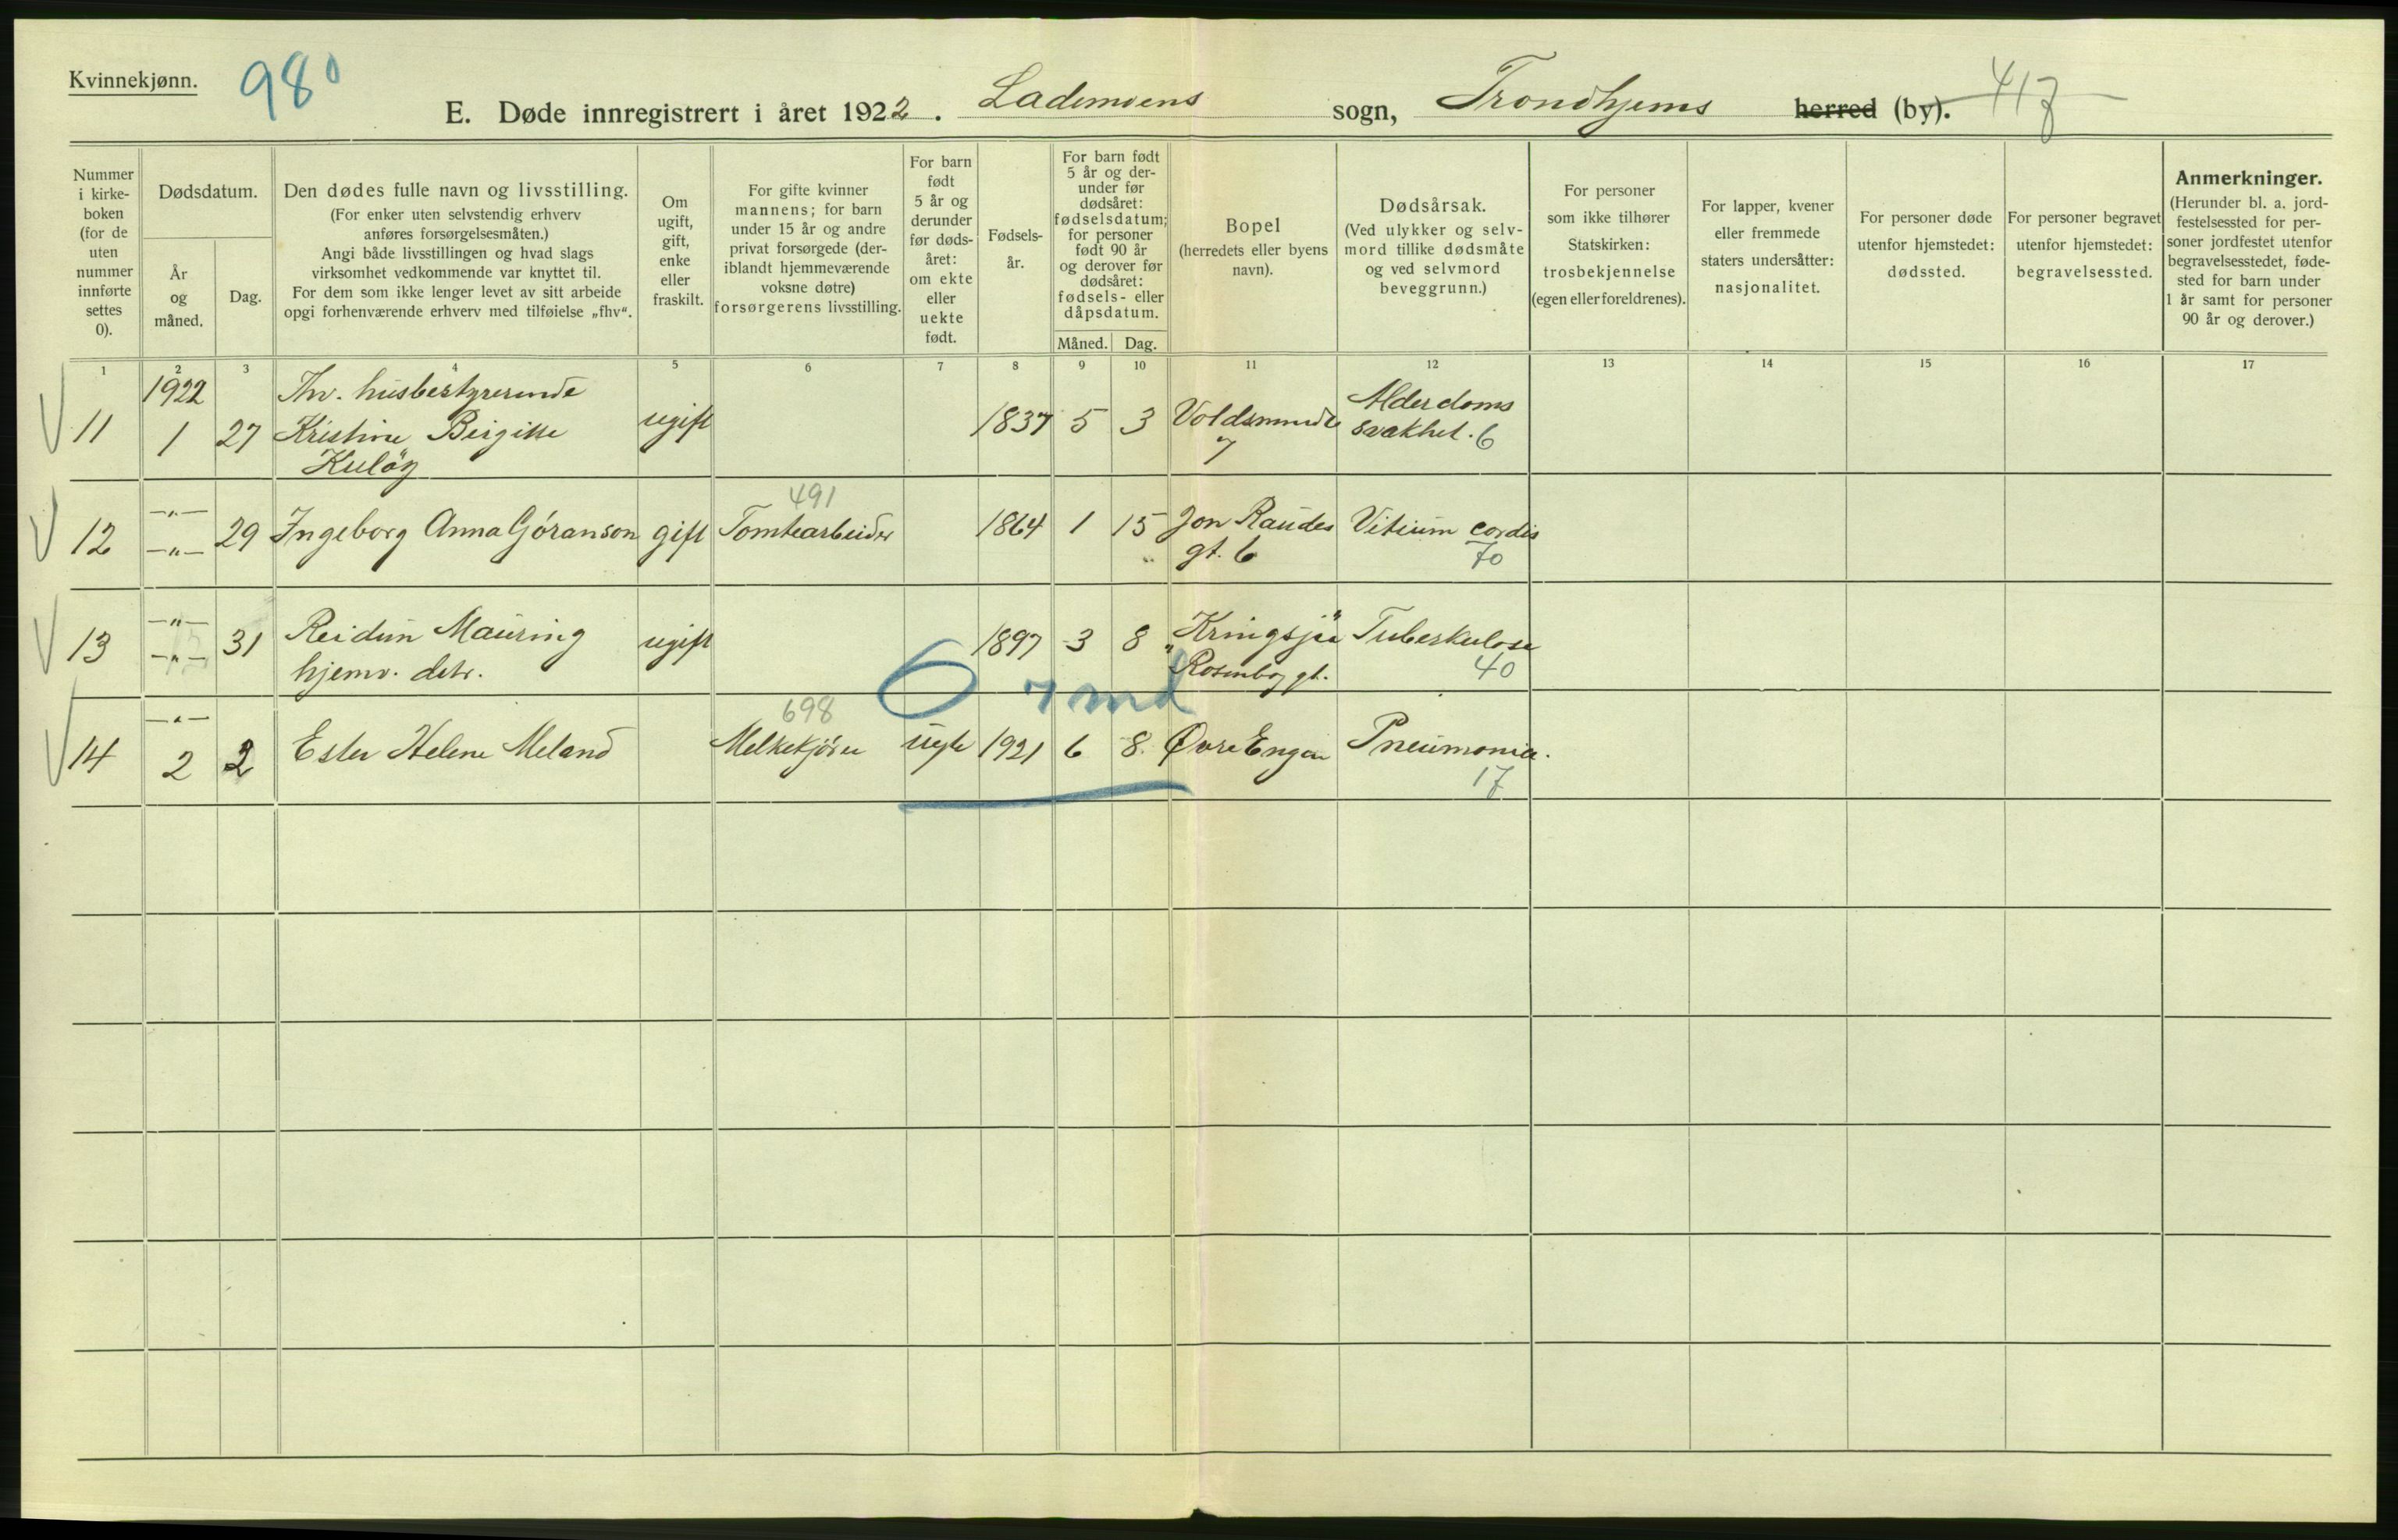 Kvinnekjønn.
980
E. Døde innregistrert i året 1922. Lademoens sogn, Trondhjems herred (by). 417
Nummer
i kirke-
boken
(for de
uten
nummer
innførte
settes
0).
Dødsdatum.
År
og
måned.
Dag.
Den dødes fulle navn og livsstilling.
(For enker uten selvstendig erhverv
anføres forsørgelsesmåten.)
Angi både livsstillingen og hvad slags
virksomhet vedkommende var knyttet til.
For dem som ikke lenger levet av sitt arbeide
opgi forhenværende erhverv med tilføielse „fhv“.
Om
ugift,
gift,
enke
eller
fraskilt.
For gifte kvinner
mannens; for barn
under 15 år og andre
privat forsørgede (der-
iblandt hjemmeværende
voksne døtre)
forsørgerens livsstilling.
For barn
født
5 år og
derunder
før døds-
året:
om ekte
eller
uekte
født.
Fødsels-
år.
For barn født
5 år og der-
under før
dødsåret:
fødselsdatum;
for personer
født 90 år
og derover før
dødsåret:
fødsels- eller
dåpsdatum.
Måned. Dag.
Bopel
(herredets eller byens
navn).
Dødsårsak.
(Ved ulykker og selv-
mord tillike dødsmåte
og ved selvmord
beveggrunn.)
For personer
som ikke tilhører
Statskirken:
trosbekjennelse
(egen eller foreldrenes).
For lapper, kvener
eller fremmede
staters undersåtter:
nasjonalitet.
For personer døde
utenfor hjemstedet:
dødssted.
For personer begravet
utenfor hjemstedet:
begravelsessted.
Anmerkninger.
(Herunder bl. a. jord-
festelsessted for per-
soner jordfestet utenfor
begravelsesstedet, føde-
sted for barn under
1 år samt for personer
90 år og derover.)
1 2 3 4 5 6 7 8 9 10 11 12 13 14 15 16 17
1922 Fhv. husbestyrerinde Alderdoms
11 1 27 Kristine Birgitte ugift 1837 5 3 Voldsminde svakhet. 6
7
491
12 —"— 29 Ingeborg Anna Göranson gift Tomtearbeider 1864 1 15 Jon Raudes Vitium cordis
—"— gt. 6 70
13 —"— 31 Reidun Mauring ugift 1897 3 8 "Kringsjå" Tuberkulose
—"— hjemv. detr. Rosenborg gt. 40
6 7 md
698
—"—
14 2 2 Ester Helene Meland Melkekjörer uegte 1921 6 8. Øvre Engen Pneumonia.
17